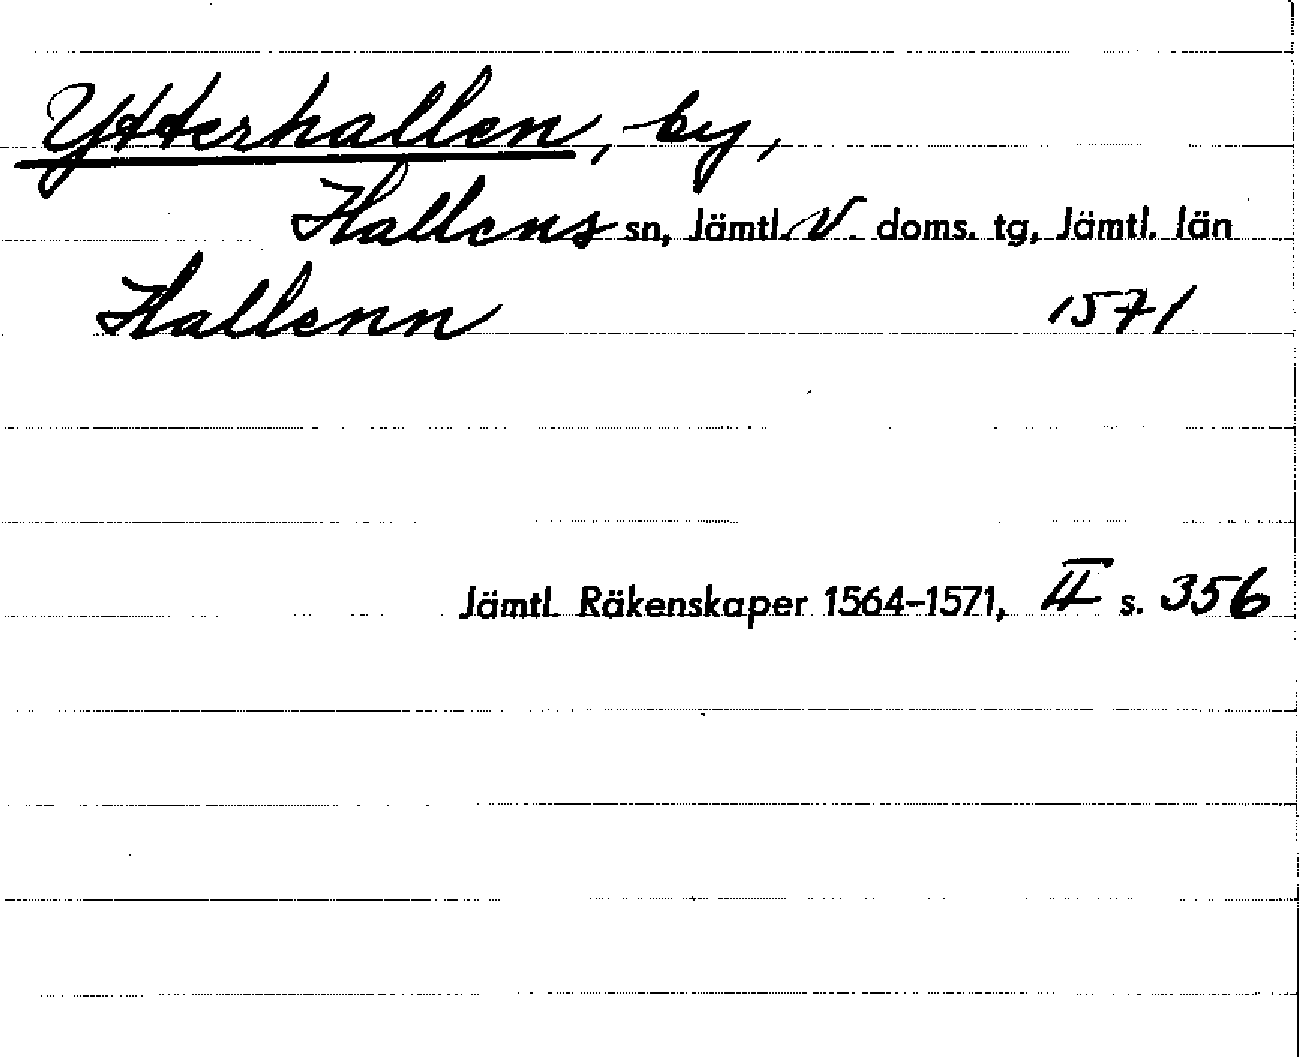 Ytterhallen, by,
Hallens sn, Jämtl. V. doms. tg, Jämtl. län
Hallenn 1571
Jämtl. Räkenskaper 1564-1571, II s. 356